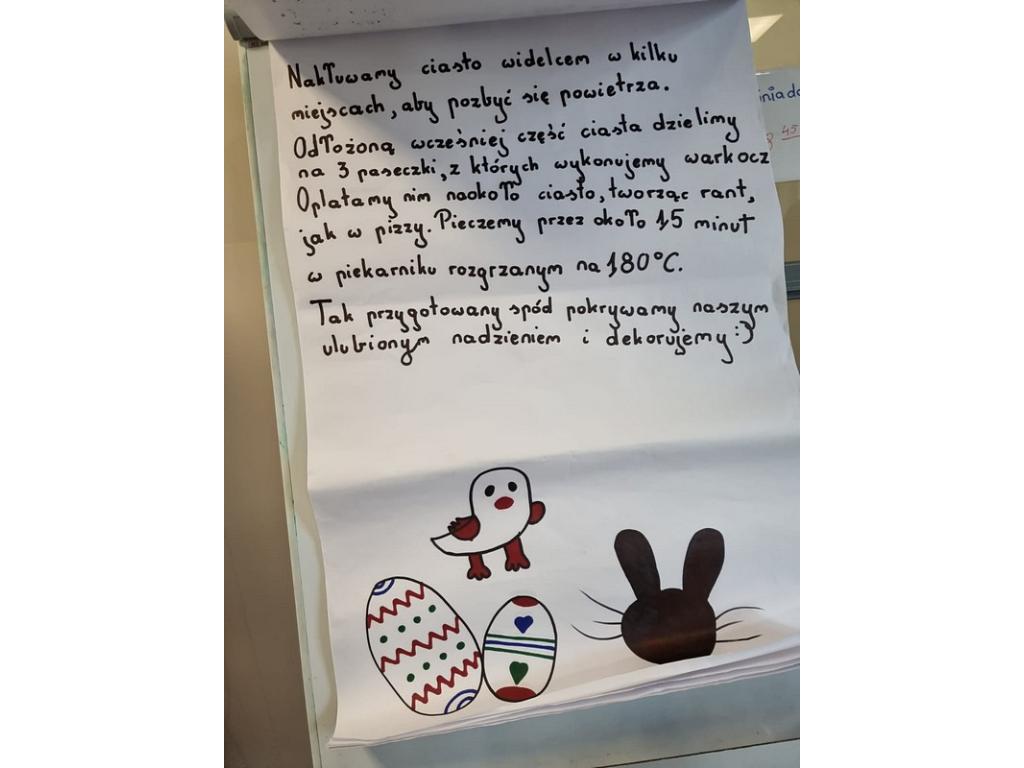 Nakłuwamy ciasto widelcem w kilku
miejscach, aby pozbyć się powietrza.
Odłożoną wcześniej część ciasta dzielimy
na 3 paseczki, z których wykonujemy warkocz
Oplatamy nim naokoło ciasto, tworząc rant,
jak w pizzy. Pieczemy przez około 15 minut
w piekarniku rozgrzanym na 180°C.
Tak przygotowany spód pokrywamy naszym
ulubionym nadzieniem i dekorujemy :)
45